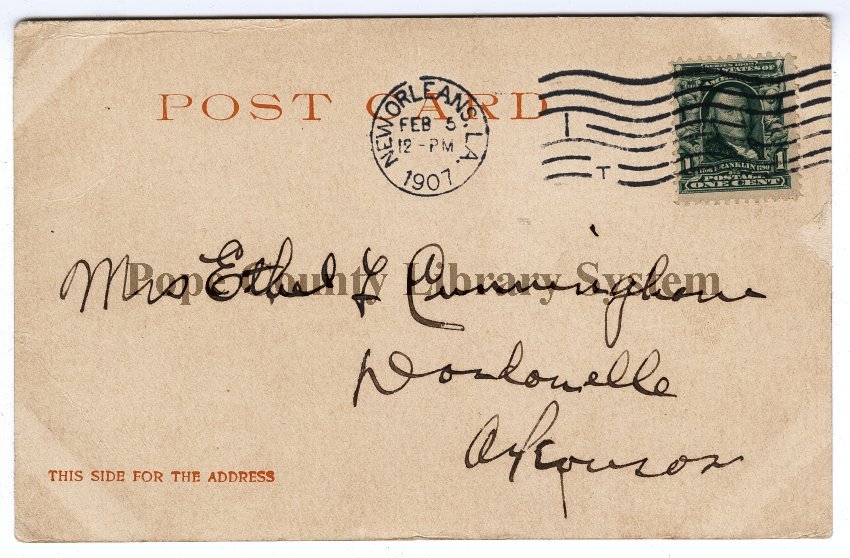 POST CARD
NEW ORLEANS, LA.
FEB 5
12-PM
1907
SERIES 1902
STATES OF
AMERICA
1706 FRANKLIN 1790
1 POSTAGE 1
ONE CENT
T
Pope County Library System
Mrs Ethel L Cunningham
Dardanelle
Arkansas
THIS SIDE FOR THE ADDRESS